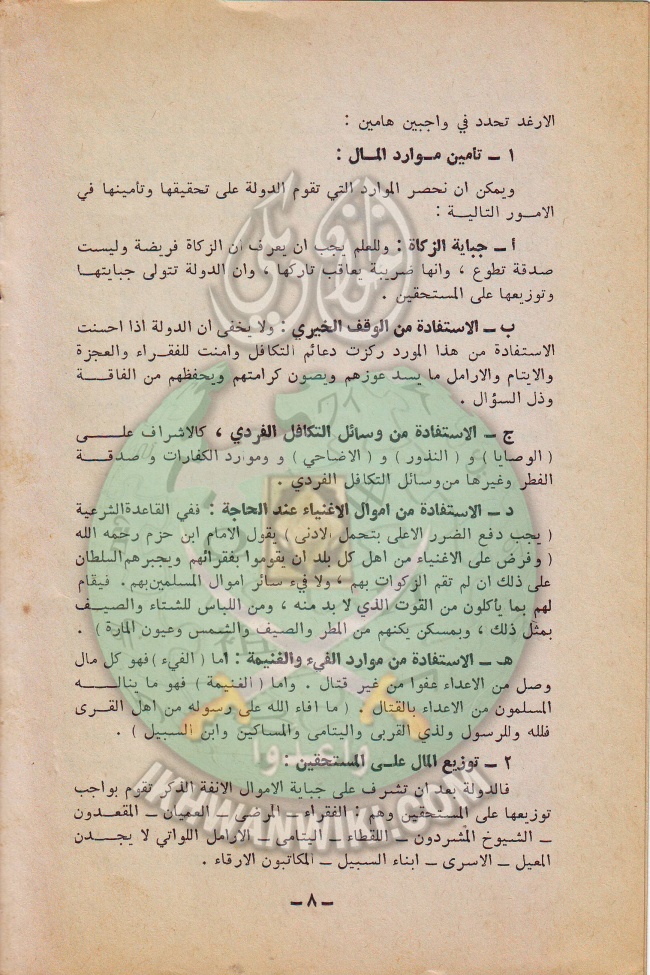 الارغد تحدد في واجبين هامين :
١ ــ تأمين مـوارد المـال :
ويمكن ان نحصر الموارد التي تقوم الدولة على تحقيقها وتأمينها في
الامـور التاليـة :
أ ــ جباية الزكاة : وللعلم يجب ان يعرف ان الزكاة فريضة وليست
صدقة تطوع ، وانها ضريبة يعاقب تاركها ، وان الدولة تتولى جبايتهـا
وتوزيعها على المستحقين .
ب ــ الاستفادة من الوقف الخيري : ولا يخفى ان الدولة اذا احسنت
الاستفادة من هذا المورد ركزت دعائم التكافل وامنت للفقراء والعجزة
والايتام والارامل ما يسد عوزهم ويصون كرامتهم ويحفظهم من الفاقـة
وذل السؤال .
ج ــ الاستفادة من وسائل التكافل الفردي ، كالاشراف علـــى
( الوصايا ) و ( النذور ) و ( الاضاحي ) و وموارد الكفارات و صدقـــة
الفطر وغيرها من وسائل التكافل الفردي .
د ــ الاستفادة من اموال الاغنياء عند الحاجة : ففي القاعدةالشرعية
( يجب دفع الضرر الاعلى بتحمل الادنى ) يقول الامام ابن حزم رحمه الله
( وفرض على الاغنياء من اهل كل بلد ان يقوموا بفقرائهم ويجبرهم السلطان
على ذلك ان لم تقم الزكوات بهم ، ولا فيء سائر اموال المسلمين بهم . فيقام
لهم بما يأكلون من القوت الذي لا بد منه ، ومن اللباس للشتاء والصيـف
بمثل ذلك ، وبمسكن يكنهم من المطر والصيف والشمس وعيون المارة ) .
هـ ــ الاستفادة من موارد الفيء والغنيمة : اما ( الفيء ) فهو كل مال
وصل من الاعداء عفوا من غير قتال . واما ( الغنيمة ) فهو ما ينالـــه
المسلمون من الاعداء بالقتال . ( ما افاء الله على رسوله من اهل القرى
فلله وللرسول ولذي القربى واليتامى والمساكين وابن السبيل ) .
٢ ــ توزيع المال علـى المستحقين :
فالدولة بعد ان تشرف على جباية الاموال الانفة الذكر تقوم بواجب
توزيعها على المستحقين وهم : الفقراء ــ المرضى ــ العميان ــ المقعدون
ــ الشيوخ المشردون ــ اللقطاء ــ اليتامى ــ الارامل اللواتي لا يجـدن
المعيل ــ الاسرى ــ ابناء السبيل ــ المكاتبون الارقاء .
ــ ٨ ــ
وأعدوا
IKHWANWIKI.COM